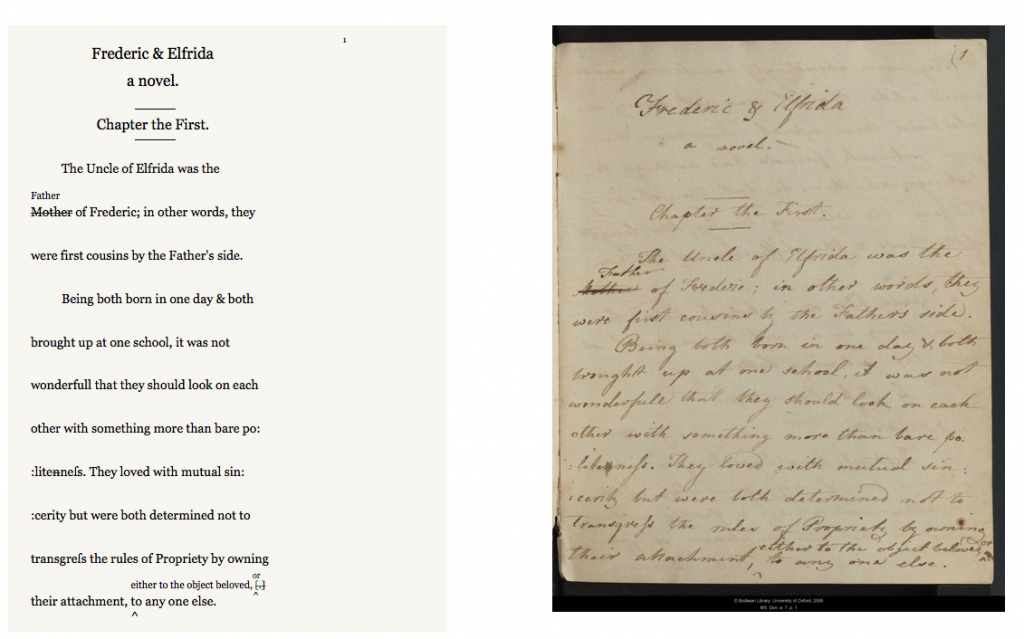 1
Frederic & Elfrida
a novel.
Chapter the First.
The Uncle of Elfrida was the
Father
Mother of Frederic; in other words, they
were first cousins by the Father's side.
Being both born in one day & both
brought up at one school, it was not
wonderfull that they should look on each
other with something more than bare po:
:litenneſs. They loved with mutual sin:
:cerity but were both determined not to
transgreſs the rules of Propriety by owning
or
either to the object beloved, [-]
^
their attachment, to any one else.
^
(1
Frederic & Elfrida
a novel.
Chapter the First.
The Uncle of Elfrida was the
Father
Mother of Frederic; in other words, they
were first cousins by the Fathers side.
Being both born in one day & both
brought up at one school, it was not
wonderfull that they should look on each
other with something more than bare po:
:liteneſs. They loved with mutual sin:
:cerity but were both determined not to
transgreſs the rules of Propriety by owning
or
either to the object beloved,
^
their attachment, to any one else.
^
© Bodleian Library, University of Oxford,
MS. Don. e. 7, p. 1